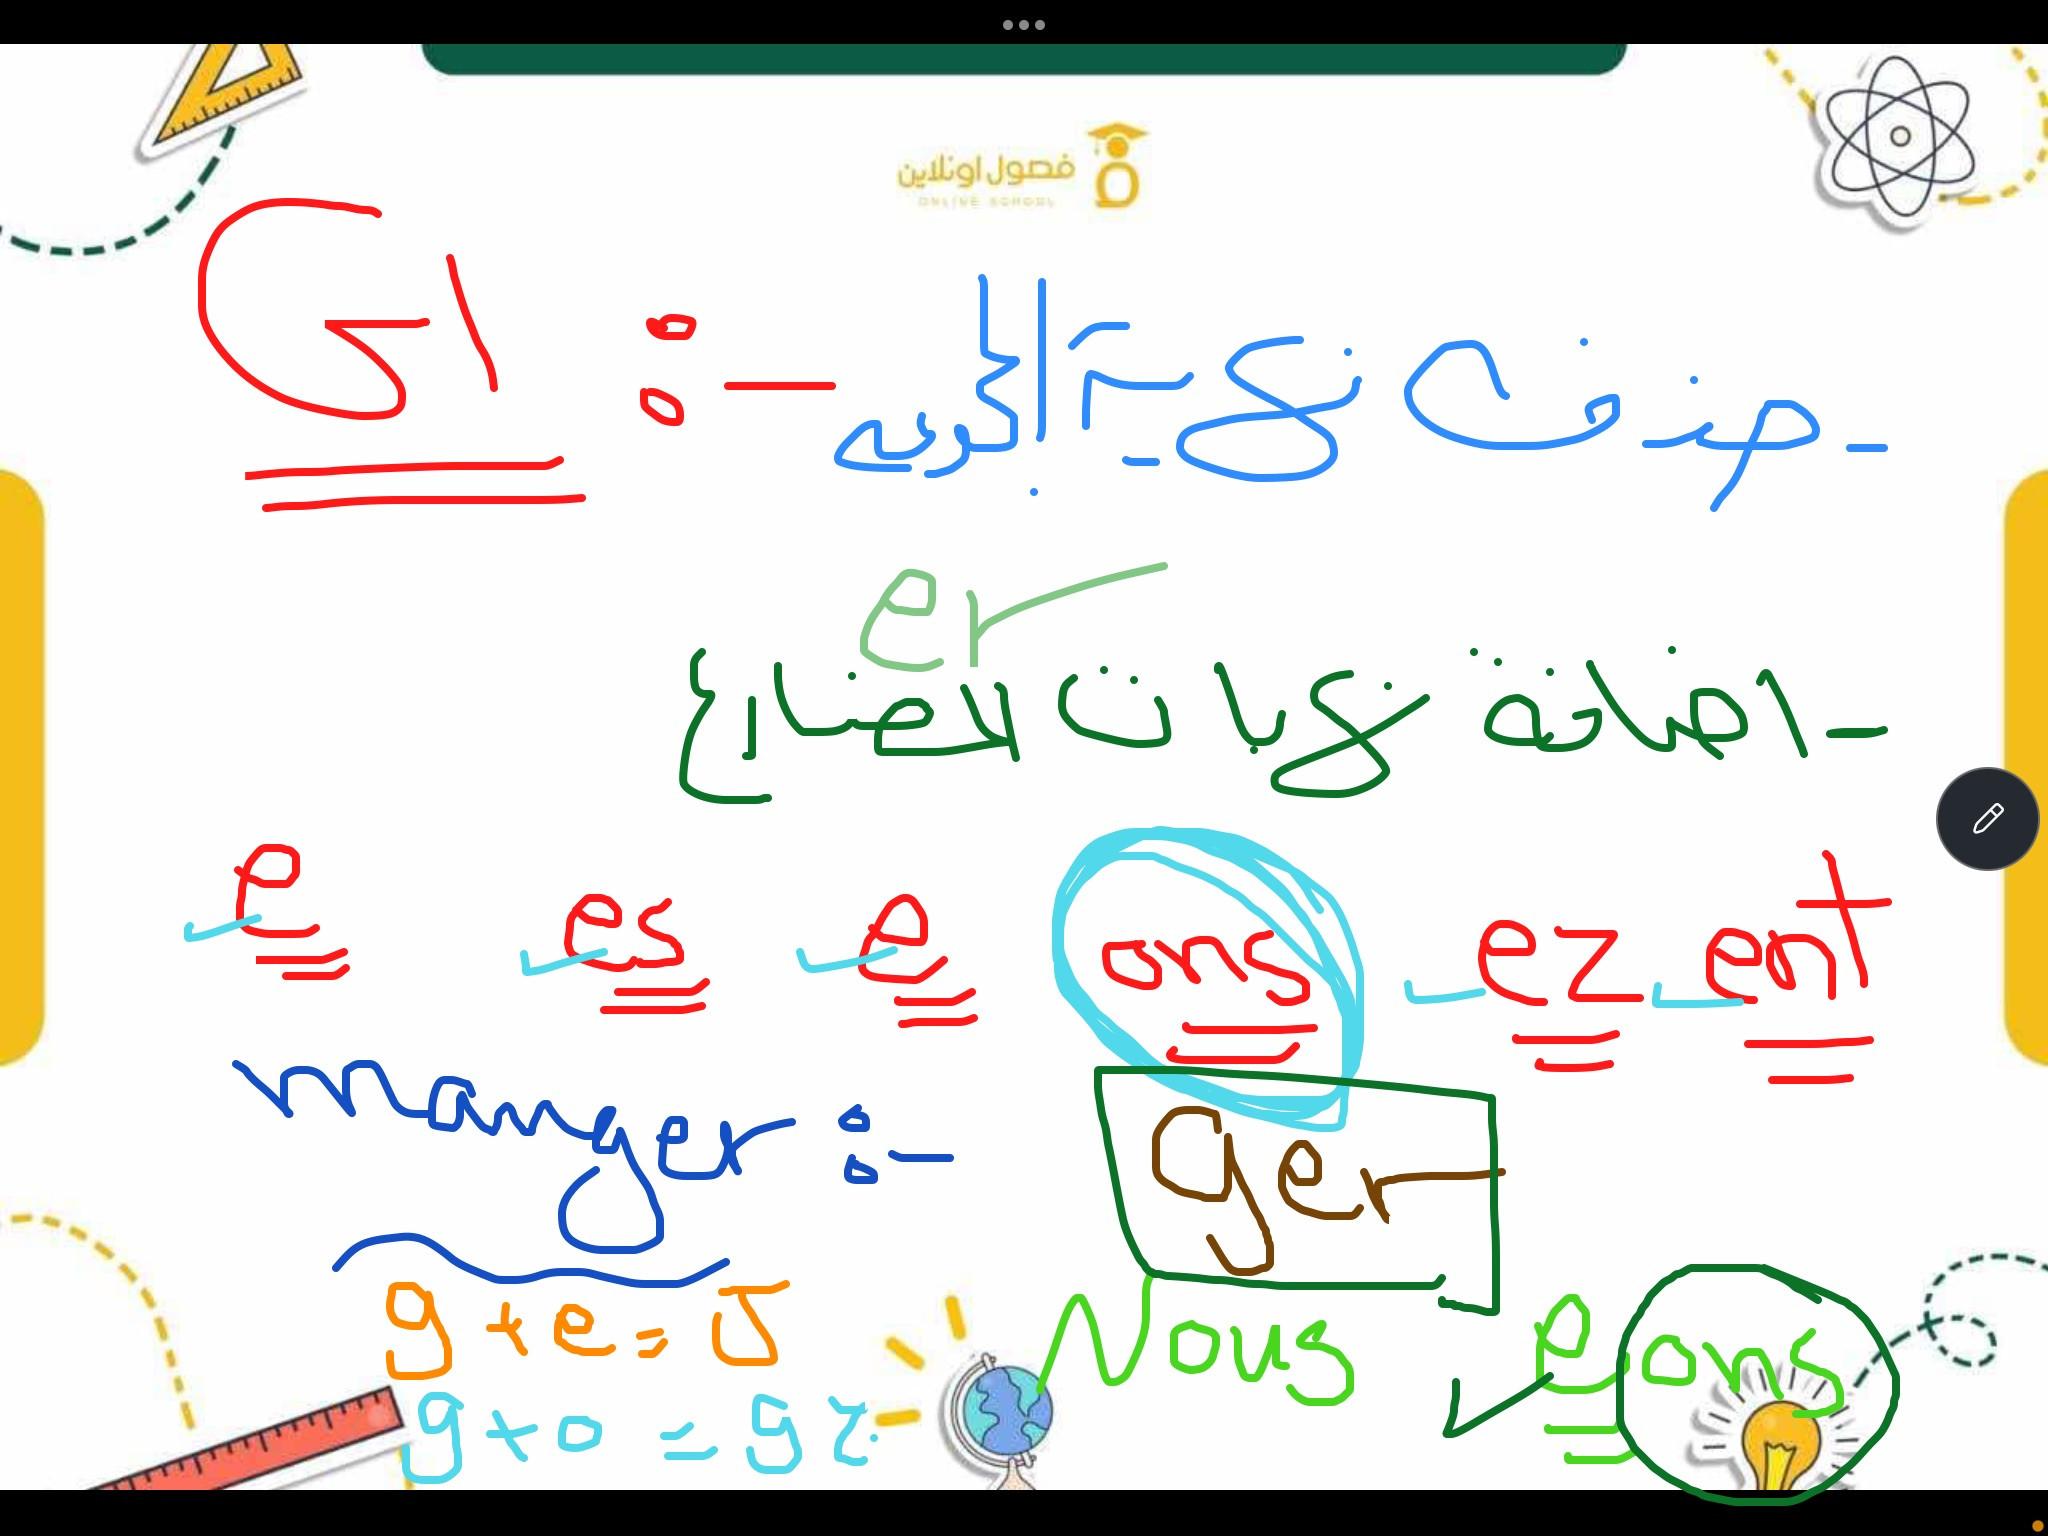 فصول اونلاين
ONLINE SCHOOL
G1 :-
- حذف نهاية
er
- اضافة نهايات المضارع
e es e ons ez ent
manger :-
ger
g + e = J
Nous eons
g + o = g ج